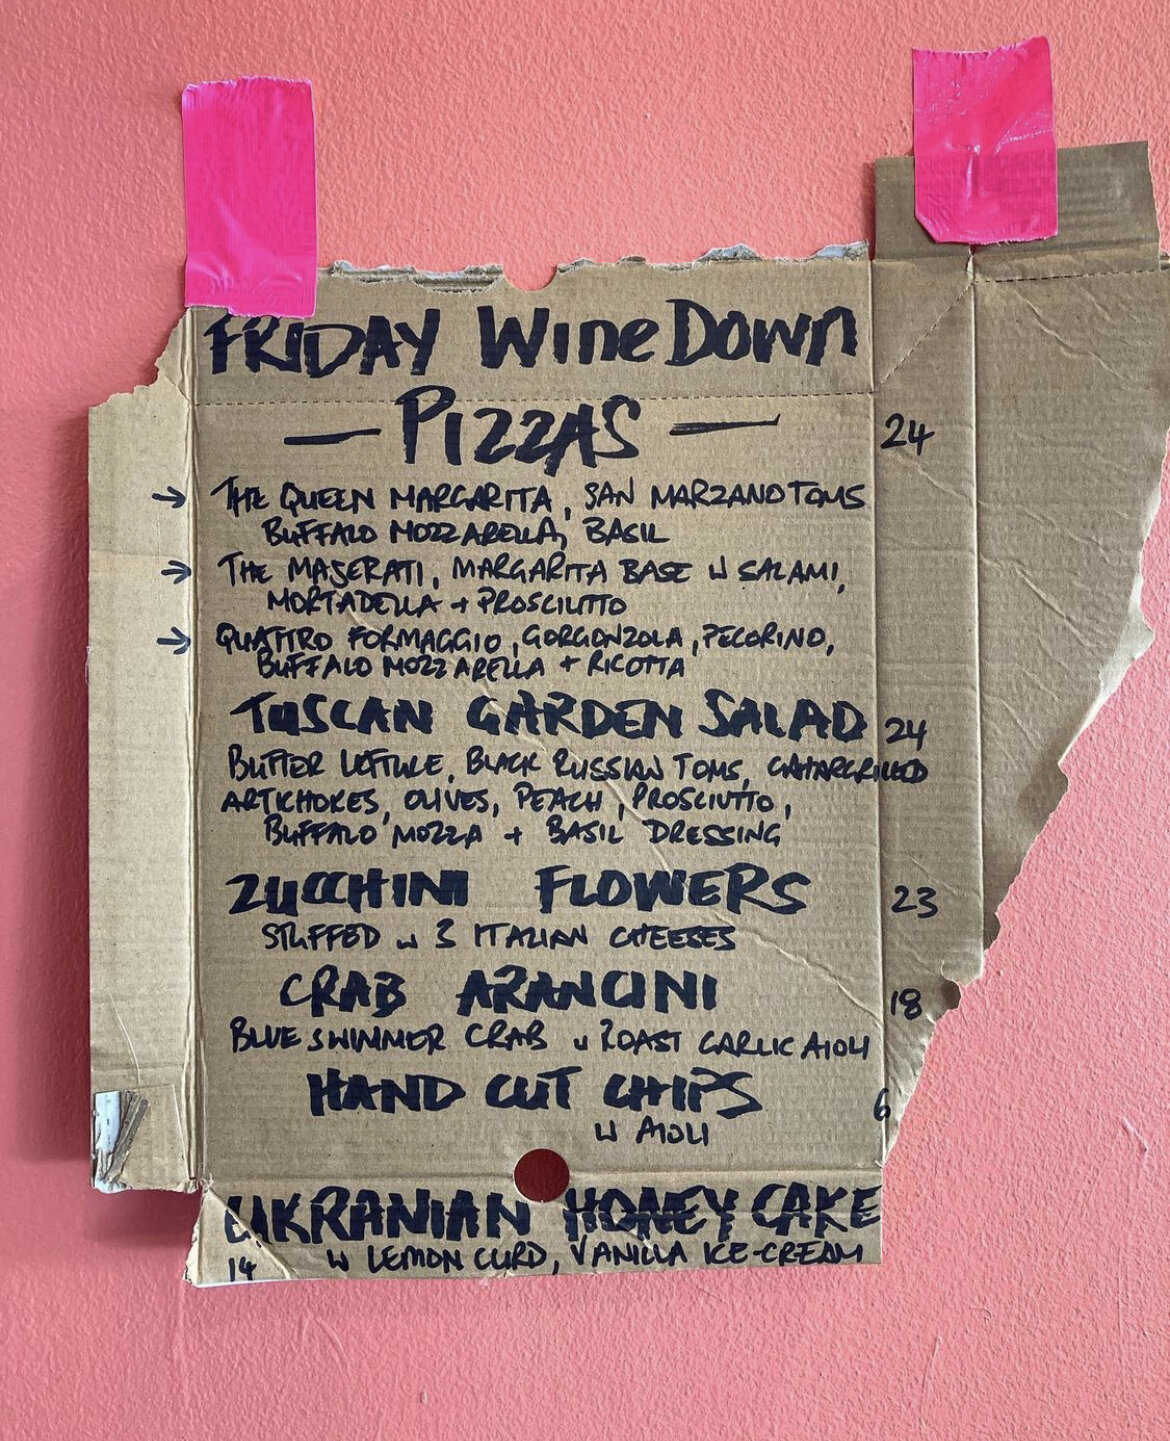 FRIDAY Wine Down
— PIZZAS — 24
→ THE QUEEN MARGARITA, SAN MARZANO TOMS
BUFFALO MOZZARELLA, BASIL
→ THE MASERATI, MARGARITA BASE W SALAMI,
MORTADELLA + PROSCIUTTO
→ QUATTRO FORMAGGIO, GORGONZOLA, PECORINO,
BUFFALO MOZZARELLA + RICOTTA
TUSCAN GARDEN SALAD 24
BUTTER LETTUCE, BLACK RUSSIAN TOMS,
ARTICHOKES, OLIVES, PEACH, PROSCIUTTO,
BUFFALO MOZZA + BASIL DRESSING
ZUCCHINI FLOWERS 23
STUFFED W 3 ITALIAN CHEESES
CRAB ARANCINI 18
BLUE SWIMMER CRAB W ROAST GARLIC AIOLI
HAND CUT CHIPS 6
W AIOLI
UKRANIAN HONEY CAKE
14 W LEMON CURD, VANILLA ICE-CREAM